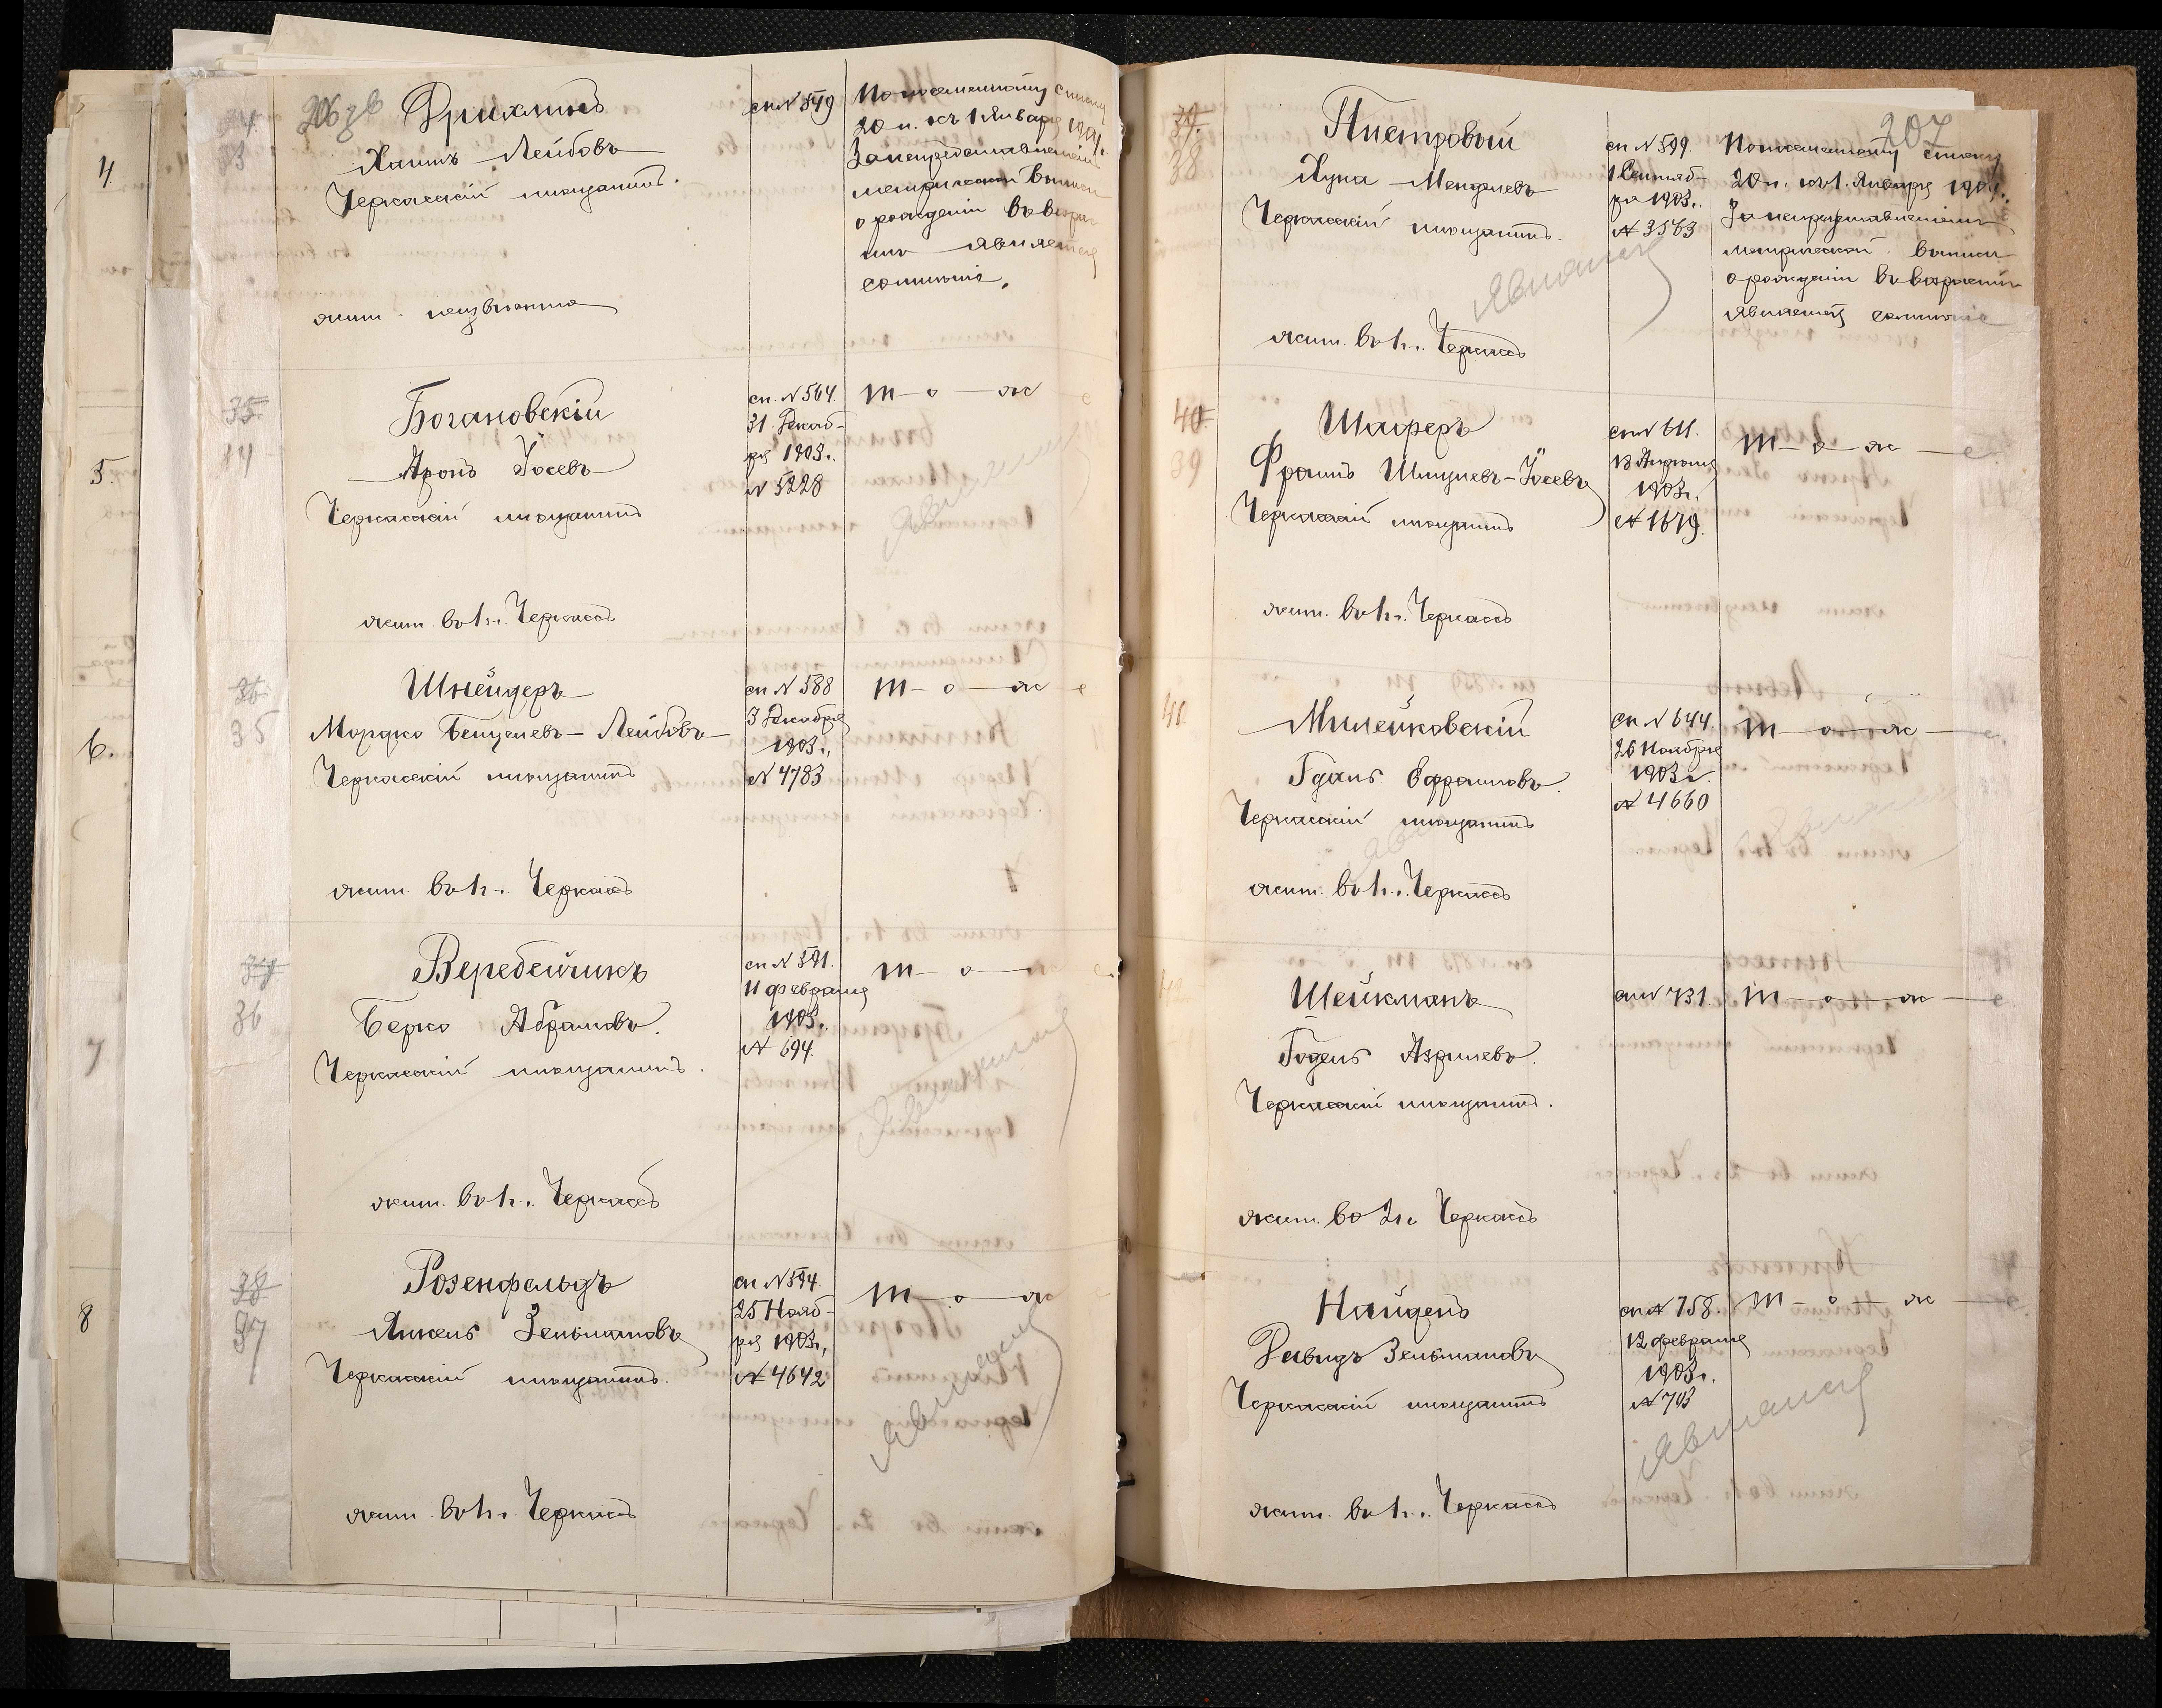 4.
5.
6.
7
8
34.
33
206 зв
Фрихлинъ
Хаимъ Лейбовъ
Черкасскій мѣщанинъ.
жит. неизвѣстно
сп № 549
По посемейному списку
20 л. къ 1 Января 1904 г.
За непредставленіемъ
метрической выписи
о рожденіи въ возрас
тѣ является
сомнѣніе.
35.
34
Богановскій
Аронъ Іосевъ
Черкасскій мѣщанинъ
жит. въ г. Черкассѣ
сп. № 564.
31 Декаб-
ря 1903 г.
№ 5228
т—о—ж е
Явился
36
35
Шнейдеръ
Мордко Бенцелевъ-Лейбовъ
Черкасскій мѣщанинъ
жит. въ г. Черкассѣ
сп № 588
3 Декабря
1903 г.,
№ 4783
т—о—ж е
37
36
Веребейчикъ
Берко Абрамовъ.
Черкасскій мѣщанинъ.
жит. въ г. Черкассѣ
сп № 591.
11 февраля
1903 г.
№ 694.
т—о—ж е
38
37
Розенфельдъ
Янкель Зельмановъ
Черкасскій мѣщанинъ.
жит. въ г. Черкассѣ
сп № 594.
25 Нояб-
ря 1903 г.,
№ 4642
т—о—ж
207
39.
38
Пистровый
Хуна Менделевъ
Черкасскій мѣщанинъ.
жит. въ г. Черкассѣ
сп № 599.
1 Сентяб-
ря 1903 г.
№ 3563
По посемейному списку
20 л. къ 1. Января 1904 г.
За непредставленіемъ
метрической выписи
о рожденіи въ возрастѣ
является сомнѣніе
40
39
Шаферъ
Фроимъ Шмулевъ-Іосевъ
Черкасскій мѣщанинъ
жит. въ г. Черкассѣ
сп № 611.
18 Апрѣля
1903 г.
№ 1679.
т—о—ж—е
41.
Милейковскій
Гдаль Эфраимовъ.
Черкасскій мѣщанинъ
жит. въ г. Черкассѣ
сп № 644.
26 Ноября
1903 г.
№ 4660
т—о—ж—е.
42
Шейкманъ
Годель Азрилевъ.
Черкасскій мѣщанинъ.
жит. въ г. Черкассѣ
сп № 731.
т—о—ж—е
Найденъ
Давидъ Зельмановъ
Черкасскій мѣщанинъ
жит. въ г. Черкассѣ
сп № 758.
12 февраля
1903 г.
№ 703
т—о—ж